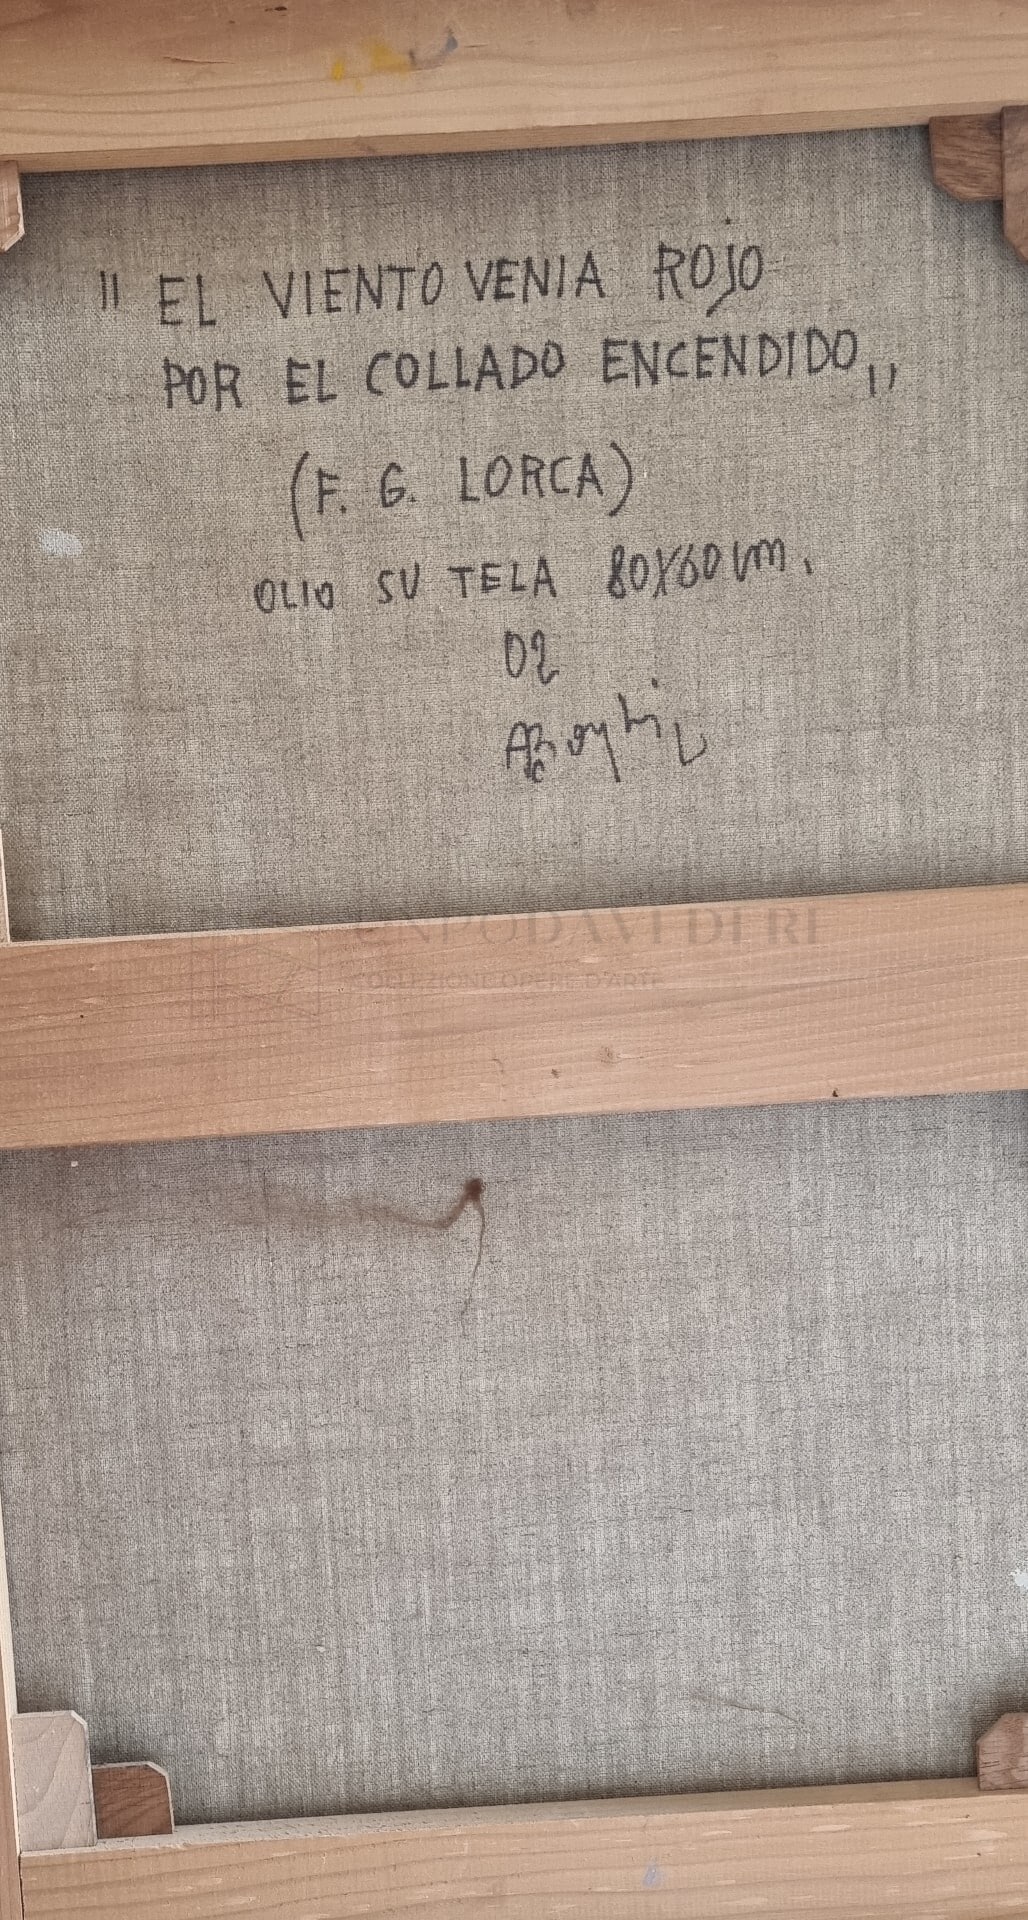 " EL VIENTO VENIA ROJO
POR EL COLLADO ENCENDIDO,,
(F. G. LORCA)
OLIO SU TELA 80X60 cm.
02
UNPODAVEDERE
COLLEZIONE OPERE D'ARTE